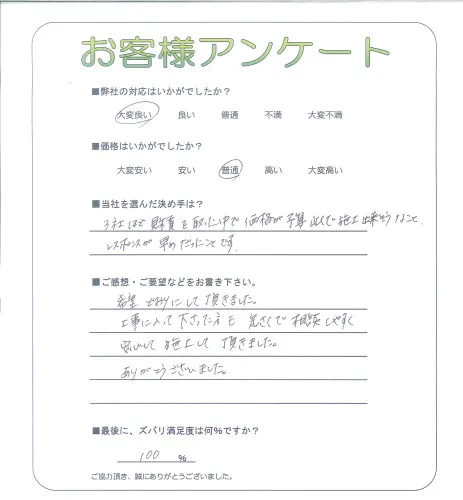 お客様アンケート
■弊社の対応はいかがでしたか？
大変良い 良い 普通 不満 大変不満
■価格はいかがでしたか？
大変安い 安い 普通 高い 大変高い
■当社を選んだ決め手は？
3社ほど見積を取った中で価格が予算以内で施工出来そうなこと、
レスポンスが早めだったことです。
■ご感想・ご要望などをお書き下さい。
希望どおりにして頂きました。
工事に入って下さった方も気さくで相談しやすく
安心して施工して頂きました。
ありがとうございました。
■最後に、ズバリ満足度は何％ですか？
100 ％
ご協力頂き、誠にありがとうございました。